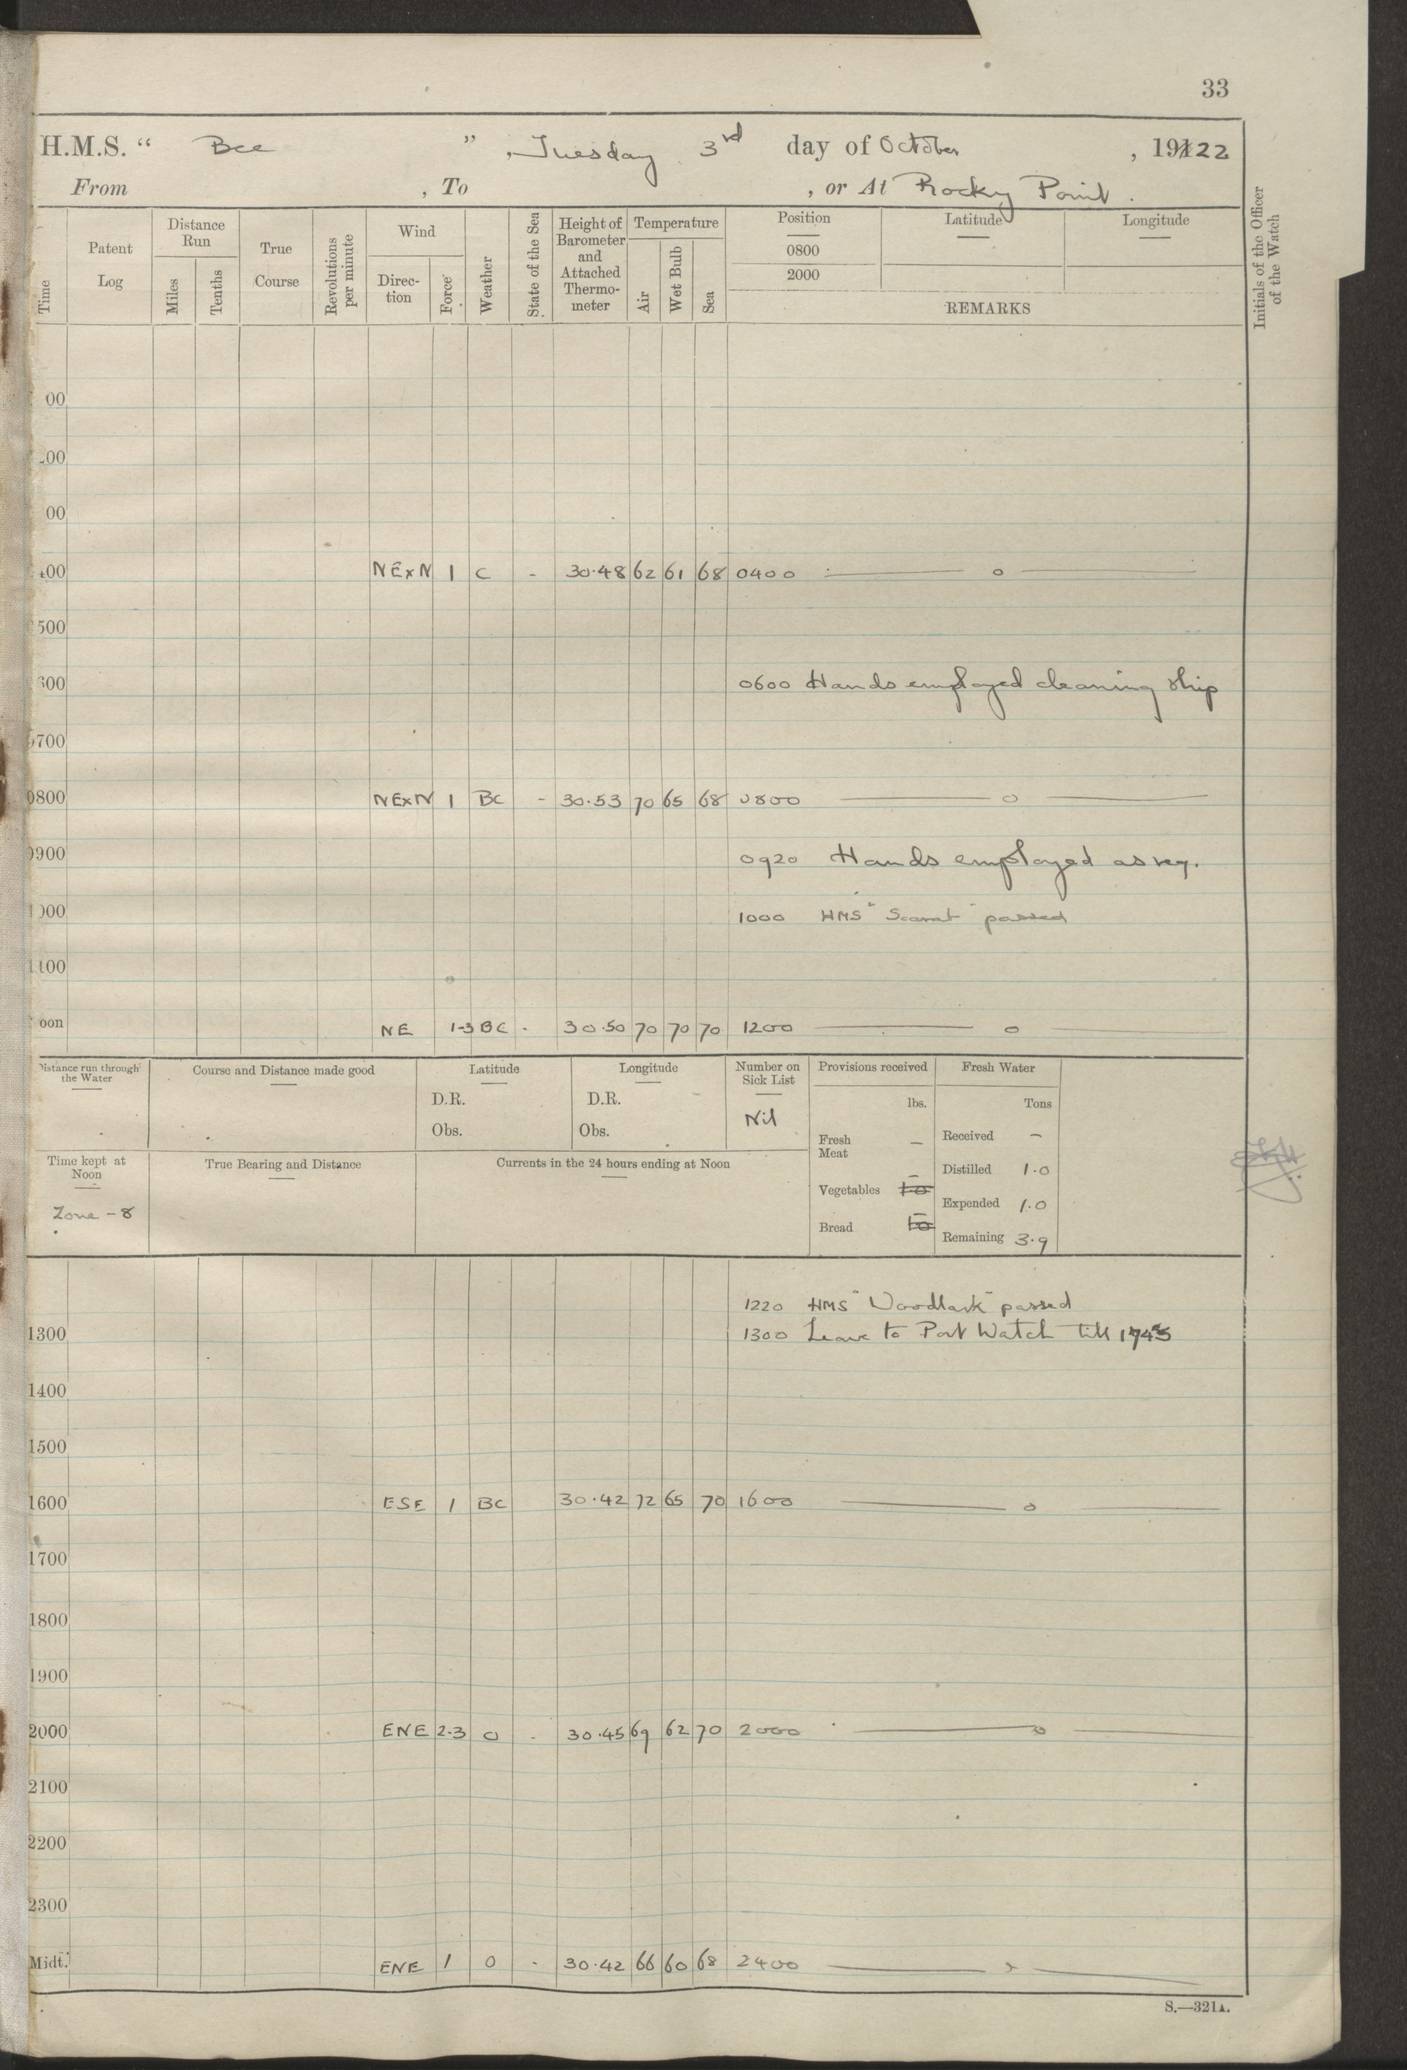 33
H.M.S. " Bee " , Tuesday 3rd day of October , 1922
From , To , or At Rocky Point.
Time Patent Log Distance Run Miles Tenths True Course Revolutions per minute Wind Direc-tion Force Weather State of the Sea Height of Barometer and Attached Thermo-meter Temperature Air Wet Bulb Sea Position 0800 2000 Latitude Longitude REMARKS Initials of the Officer of the Watch
00
00
00
400 NE×N 1 C - 30.48 62 61 68 0400 — o —
500
600 0600 Hands employed cleaning ship
0700
0800 NE×N 1 BC - 30.53 70 65 68 0800 — o —
0900 0920 Hands employed as req.
1000 1000 HMS "Scarab" passed
1100
oon NE 1-3 BC - 30.50 70 70 70 1200 — o
Distance run through the Water Course and Distance made good Latitude D.R. Obs. Longitude D.R. Obs. Number on Sick List Nil Provisions received lbs. Fresh Water Tons
Fresh Meat — Received —
Time kept at Noon True Bearing and Distance Currents in the 24 hours ending at Noon Distilled 1.0
Vegetables — Expended 1.0
Zone -8 Bread — Remaining 3.9
1220 HMS "Woodlark" passed
1300 1300 Leave to Port Watch till 1745
1400
1500
1600 ESE 1 BC 30.42 72 65 70 1600 — o —
1700
1800
1900
2000 ENE 2-3 O - 30.45 69 62 70 2000 — o —
2100
2200
2300
Midt. ENE 1 O - 30.42 66 60 68 2400 — —
S.—321A.